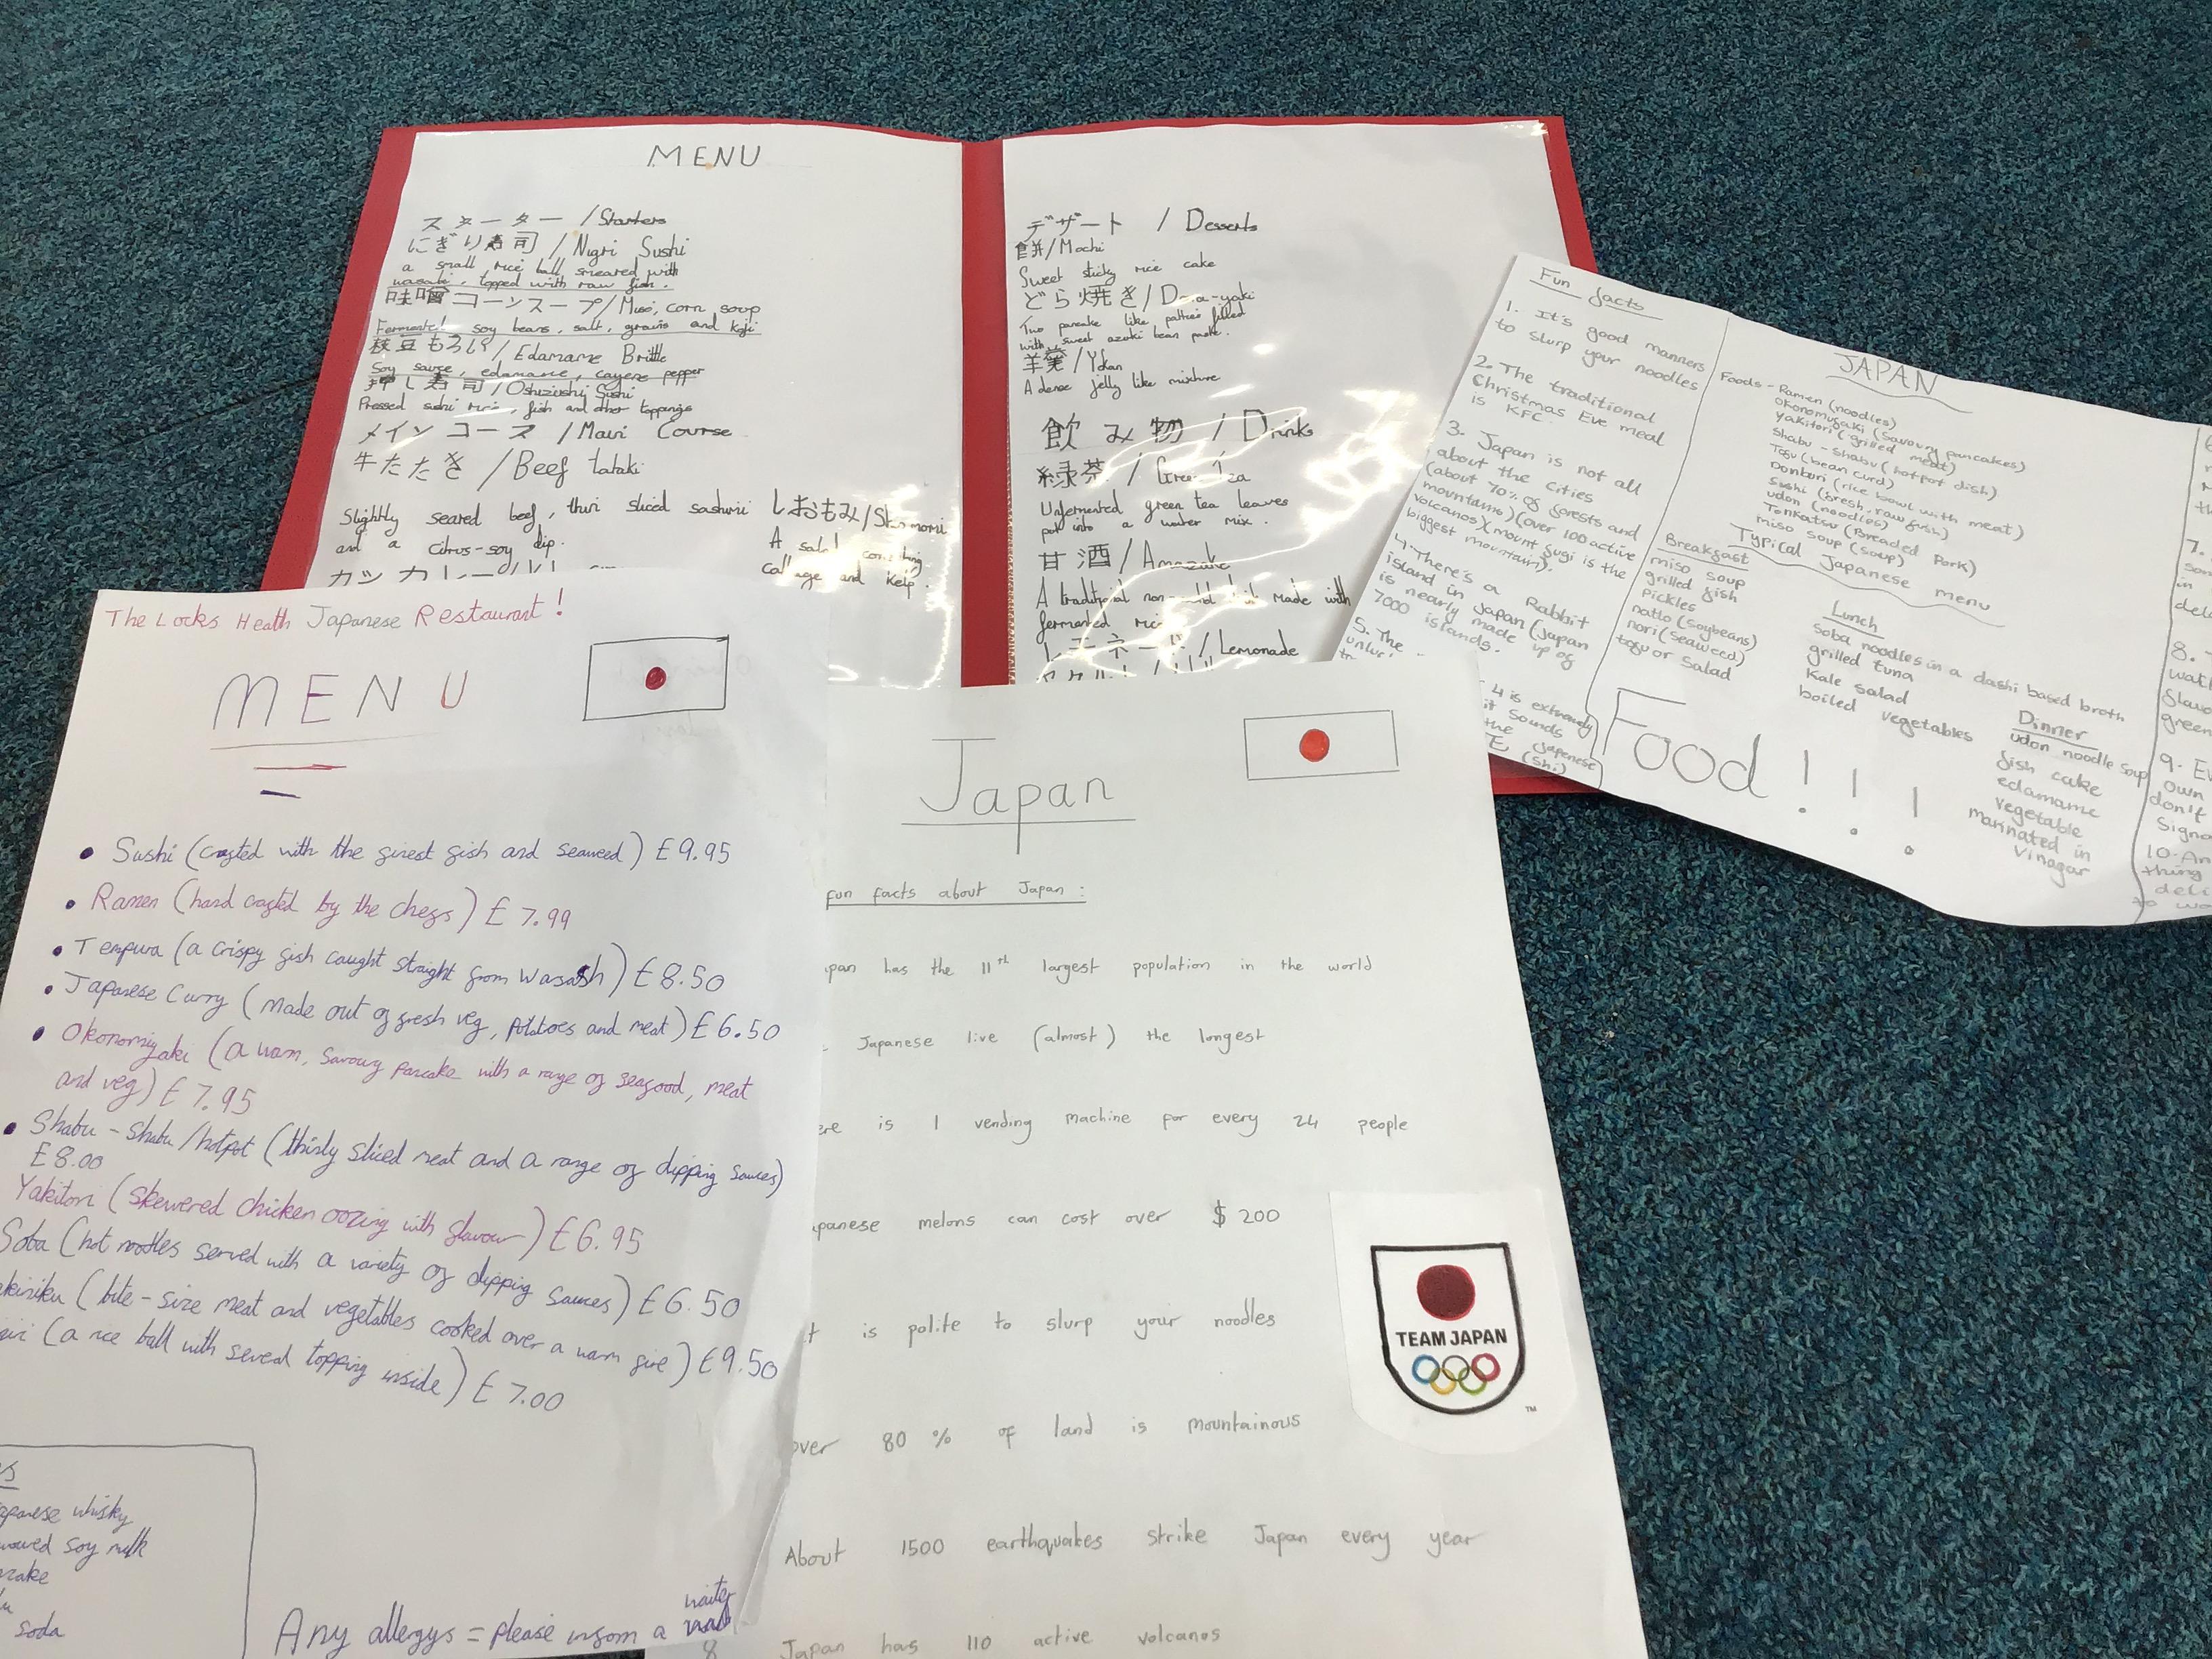 MENU
スターター / Starters
にぎり寿司 / Nigri Sushi
a small rice ball smeared with
wasabi, topped with raw fish.
味噌コーンスープ / Miso, corn soup
Fermented soy beans, salt, grains and Koji
枝豆もろい / Edamame Brittle
Soy sauce, edamame, cayene pepper
押し寿司 / Oshizushi Sushi
Pressed sushi rice, fish and other toppings
メインコース / Main Course
牛たたき / Beef tataki
Slightly seared beef, thin sliced sashimi
and a citrus-soy dip.
しおもみ /
A salad
and Kelp.
デザート / Desserts
餅 / Mochi
Sweet sticky rice cake
どら焼き / Dora-yaki
Two pancake like patties filled
with sweet azuki bean paste.
羊羹 / Yokan
A dense jelly like mixture
飲み物 / Drinks
緑茶 / Green Tea
Unfermented green tea leaves
put into a water mix.
甘酒 / Amazake
A traditional made with
fermented rice
レモネード / Lemonade
Fun facts
1. It's good manners
to slurp your noodles
2. The traditional
Christmas Eve meal
is KFC.
3. Japan is not all
about the cities
(about 70% of forests and
mountains) (over 100 active
volcanos) (mount Fugi is the
biggest mountain).
4. There's a Rabbit
island in Japan (Japan
is nearly made up of
7000 islands.
5. The
4 is extremely
it sounds
the Japenese
(shi)
JAPAN
Foods - Ramen (noodles)
okonomiyaki (savoury pancakes)
yakitori (grilled meat)
Shabu - shabu (hotpot dish)
Tofu (bean curd)
Donburi (rice bowl with meat)
Sushi (fresh, raw fish)
udon (noodles)
Tonkatsu (Breaded Pork)
miso soup (soup)
Typical Japanese menu
Breakfast
miso soup
grilled fish
pickles
natto (soybeans)
nori (seaweed)
tofu or salad
Lunch
soba noodles in a dashi based broth
grilled tuna
kale salad
boiled vegetables
Dinner
udon noodle soup
fish cake
edamame
vegetable
marinated in
vinagar
Food!!!
7.
8.
green
9.
own
don't
10. An
thing
deli
to wo
The Locks Heath Japanese Restaurant!
MENU
• Sushi (crafted with the finest fish and seaweed) £9.95
• Ramen (hand crafted by the chefs) £7.99
• Tempura (a crispy fish caught straight from Wasash) £8.50
• Japanese Curry (made out of fresh veg, potatoes and meat) £6.50
• Okonomiyaki (a warm, savoury pancake with a range of seafood, meat
and veg) £7.95
• Shabu - shabu/hotpot (thinly sliced meat and a range of dipping sauces)
£8.00
Yakitori (skewered chicken oozing with flavour) £6.95
Soba (hot noodles served with a variety of dipping sauces) £6.50
akiniku (bite-size meat and vegetables cooked over a warm fire) £9.50
(a rice ball with several topping inside) £7.00
apanese whisky
soy milk
soda
Any allergys = please inform a waiter
Japan
fun facts about Japan:
apan has the 11th largest population in the world
Japanese live (almost) the longest
ere is 1 vending machine for every 24 people
apanese melons can cost over $200
t is polite to slurp your noodles
over 80% of land is mountainous
About 1500 earthquakes strike Japan every year
8 Japan has 110 active volcanos
TEAM JAPAN
TM